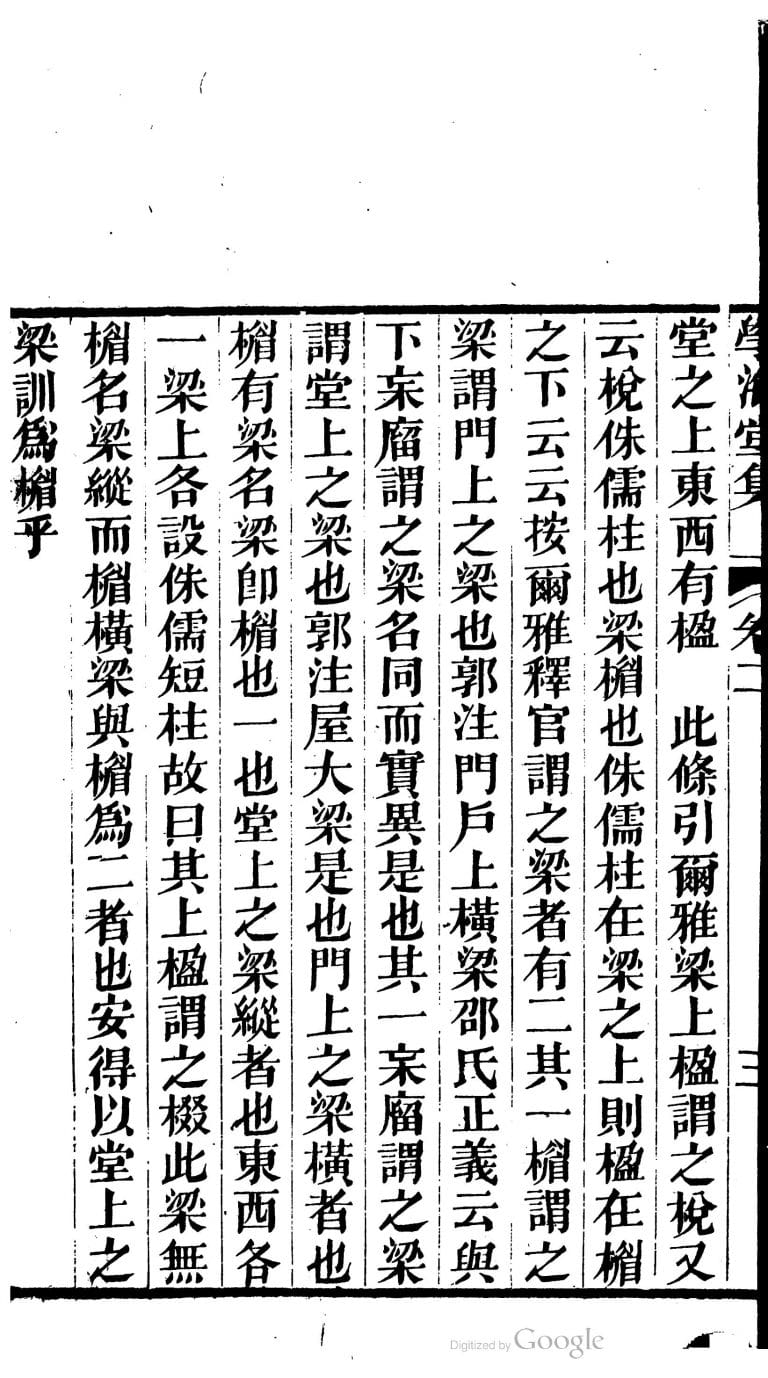 學海堂集 卷二 三
堂之上東西有楹 此條引爾雅梁上楹謂之梲又
云梲侏儒柱也梁楣也侏儒柱在梁之上則楹在楣
之下云云按爾雅釋官謂之梁者有二其一楣謂之
梁謂門上之梁也郭注門戶上橫梁邵氏正義云與
下杗廇謂之梁名同而實異是也其一杗廇謂之梁
謂堂上之梁也郭注屋大梁是也門上之梁橫者也
楣有梁名梁卽楣也一也堂上之梁縱者也東西各
一梁上各設侏儒短柱故曰其上楹謂之棳此梁無
楣名梁縱而楣橫梁與楣爲二者也安得以堂上之
梁訓爲楣乎
Digitized by Google